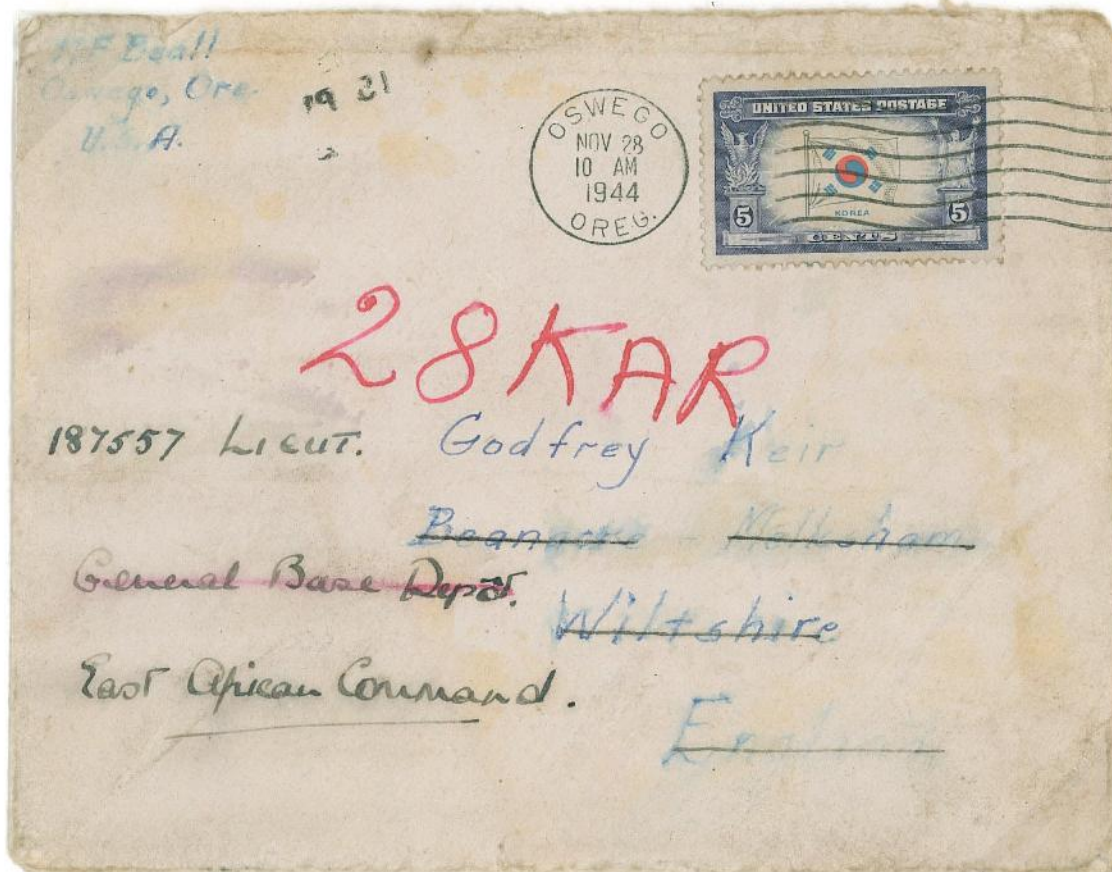 MF Beall
Oswego, Ore.
U.S.A.
19 21
OSWEGO
NOV 28
10 AM
1944
OREG.
UNITED STATES POSTAGE
KOREA
5 5
CENTS
28 KAR
187557 Lieut. Godfrey Keir
Beanacre - Melksham
General Base Depôt.
Wiltshire
East African Command.
England